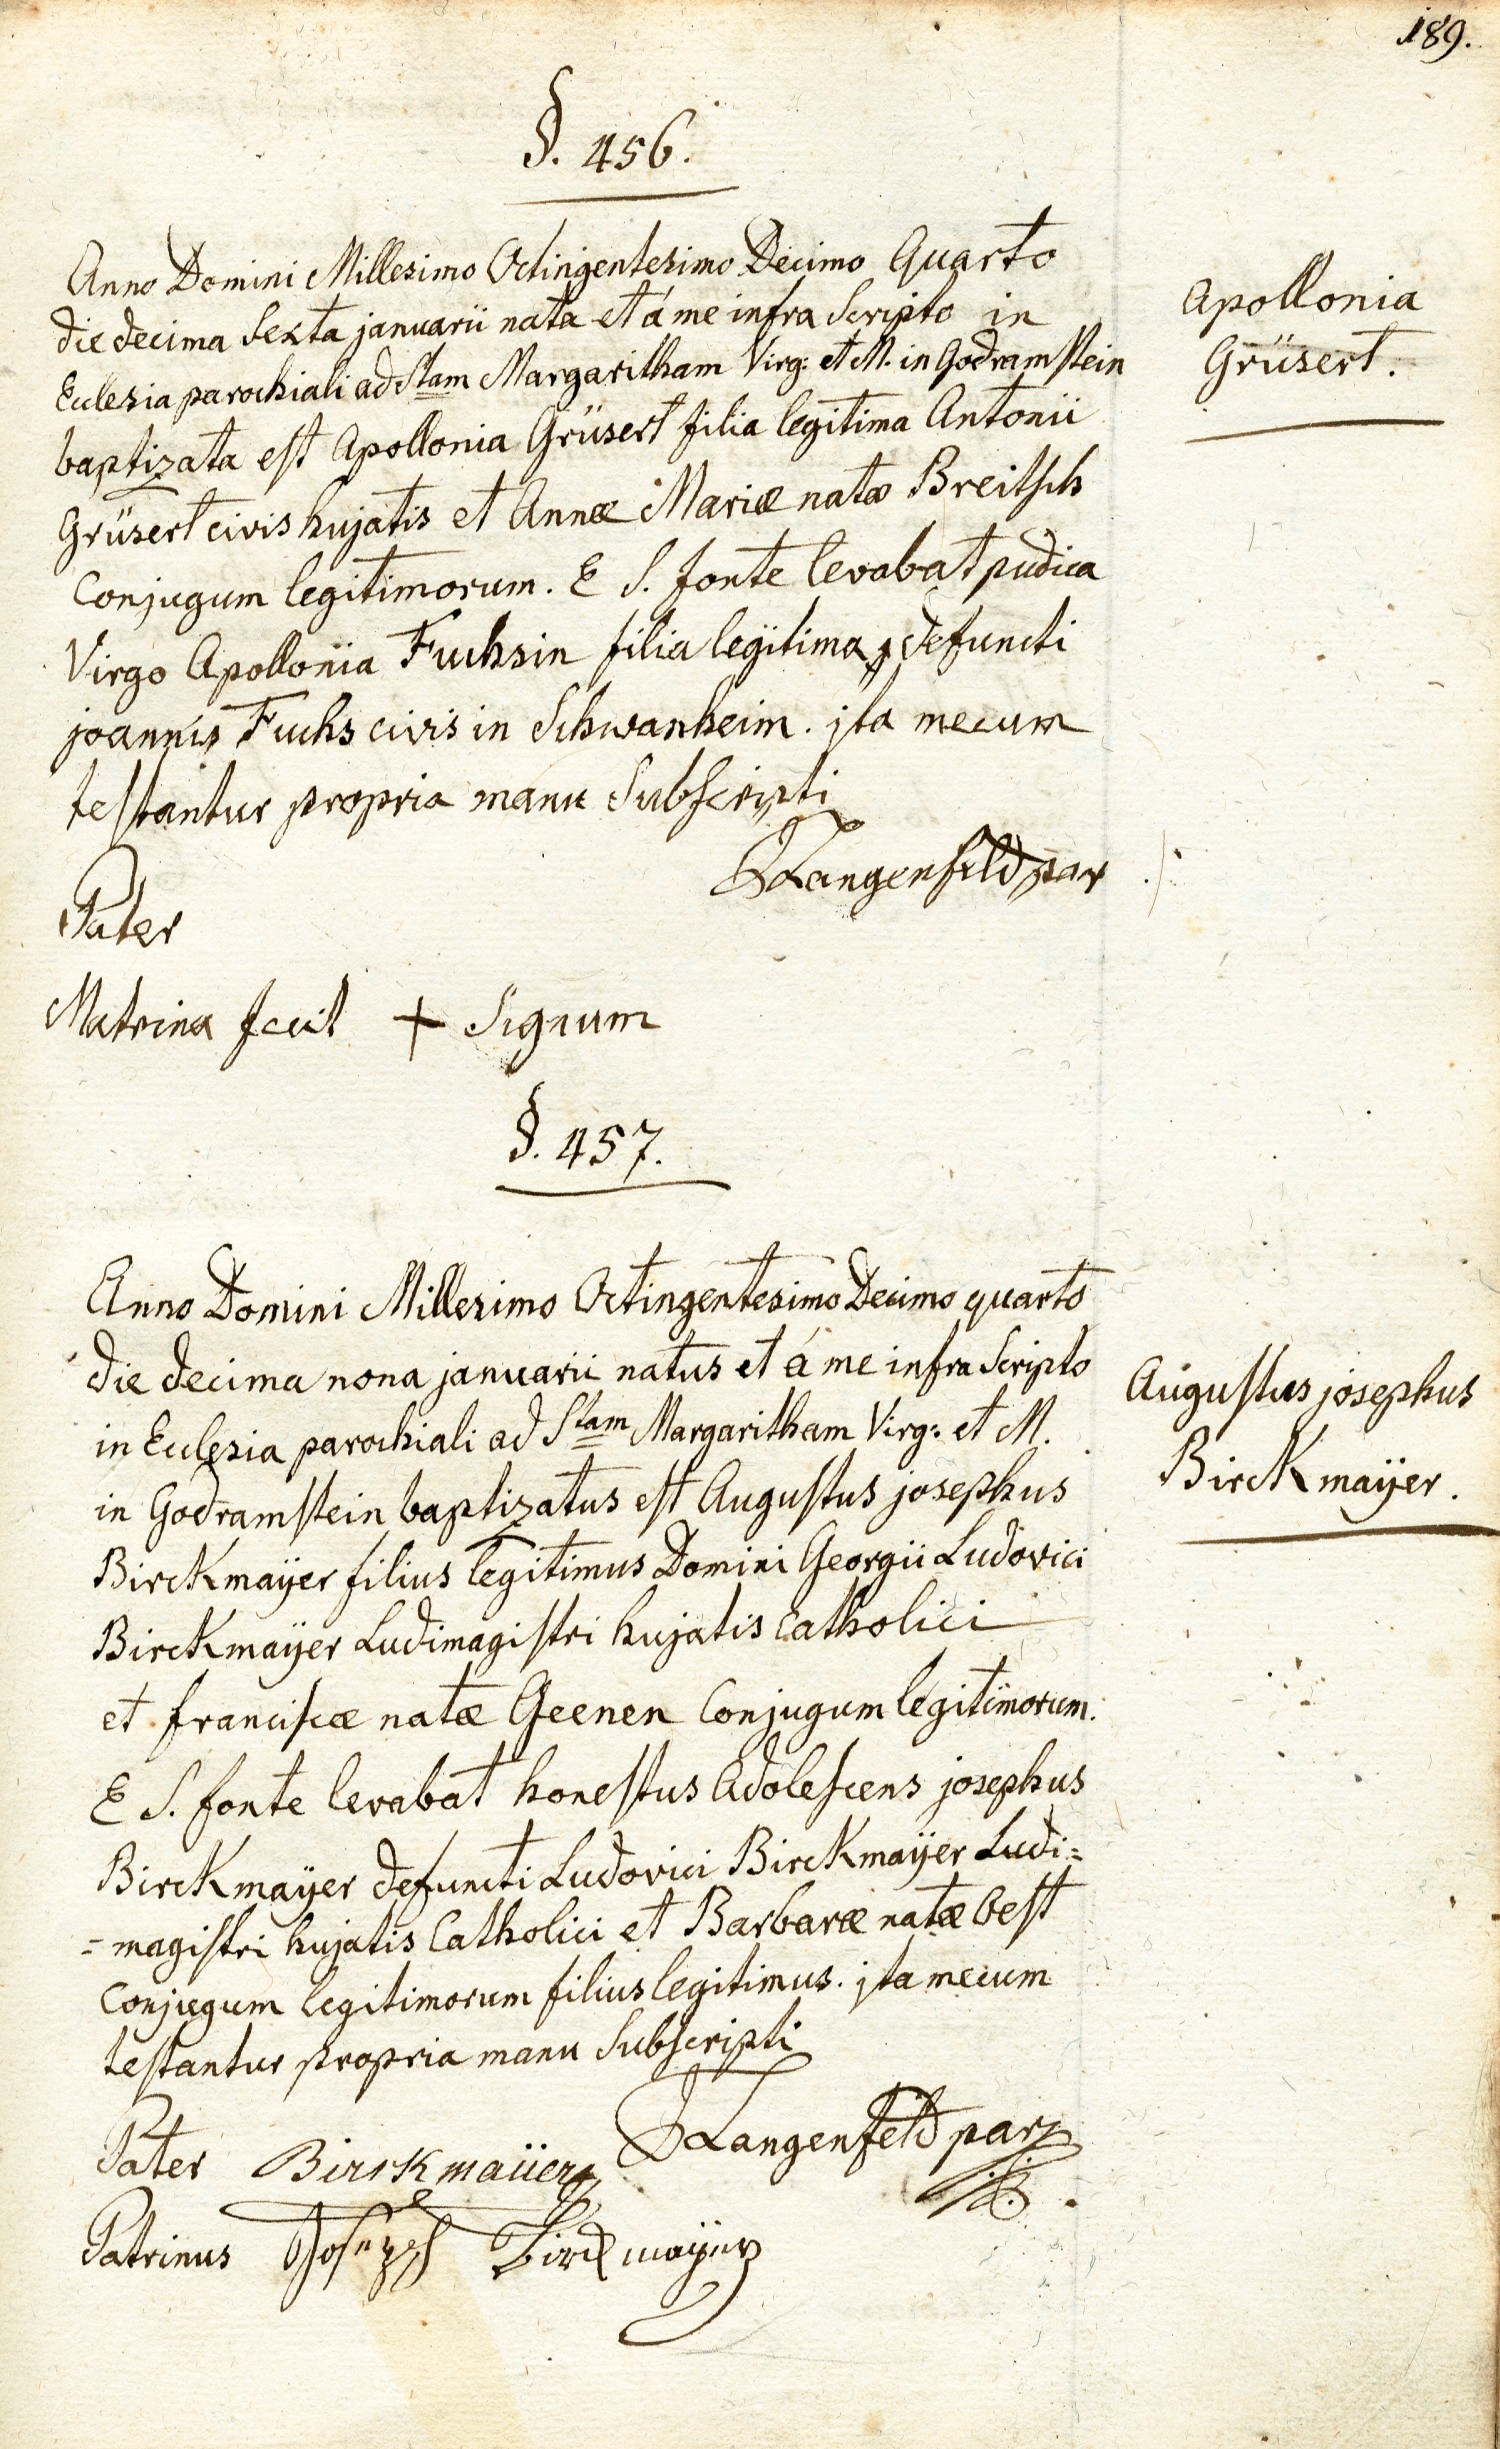 189.
§. 456.
Anno Domini Millesimo Octingentesimo Decimo Quarto
die decima Sexta januarii nata et á me infra Scripto in
Ecclesia parochiali ad Stam Margaritham Virg: et M. in Godramstein
baptizata est Apollonia Grüsert filia legitima Antonii
Grüsert civis hujatis et Annæ Mariæ natæ Breitsch
Conjugum legitimorum. E S. fonte levabat pudica
Virgo Apollonia Fuchsin filia legitima defuncti
joannis Fuchs civis in Schwanheim. jta mecum
testantur propria manu Subscripti
Langenfeld par
Pater
Matrina fecit + Signum
Apollonia
Grüsert.
§. 457.
Anno Domini Millesimo Octingentesimo Decimo quarto
die decima nona januarii natus et á me infra Scripto
in Ecclesia parochiali ad Stam Margaritham Virg: et M.
in Godramstein baptizatus est Augustus josephus
Birckmaÿer filius legitimus Domini Georgii Ludovici
Birckmaÿer Ludimagistri hujatis Catholici
et franciscæ natæ Geenen Conjugum legitimorum.
E S. fonte levabat honestus Adolescens josephus
Birckmaÿer defuncti Ludovici Birckmaÿer Ludi=
=magistri hujatis Catholici et Barbaræ natæ best
Conjugum legitimorum filius legitimus. jta mecum
testantur propria manu Subscripti
Langenfeld par
Pater Birckmaÿer
Patrinus Joseph Birckmaÿer
Augustus josephus
Birckmaÿer.